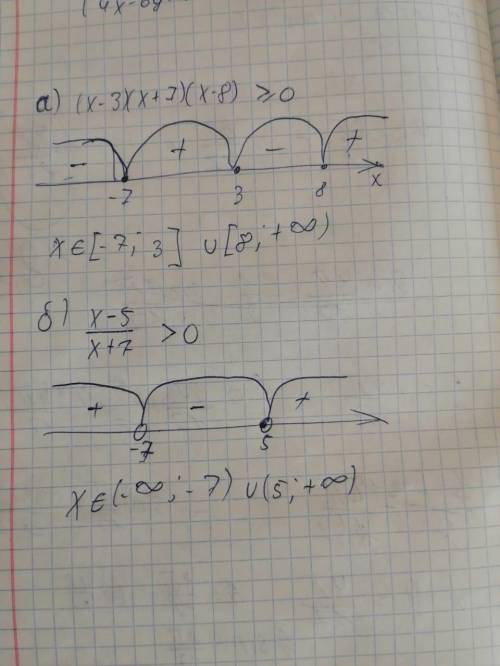 а) (x-3)(x+7)(x-8) ≥0
- + - +
-7 3 8 x
x∈[-7; 3] ∪[8;+∞)
б) x-5
x+7 >0
+ - +
-7 5
x∈(-∞;-7) ∪(5;+∞)